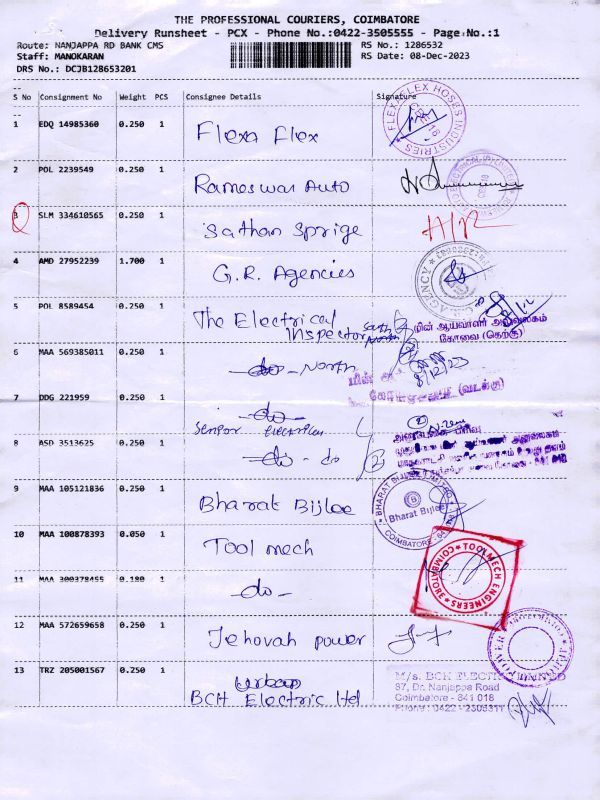 THE PROFESSIONAL COURIERS, COIMBATORE
Delivery Runsheet - PCX - Phone No.:0422-3505555 - Page No.:1
Route: NANJAPPA RD BANK CMS
RS No.: 1286532
Staff: MANOKARAN
RS Date: 08-Dec-2023
DRS No.: DCJB128653201
S No Consignment No Weight PCS Consignee Details Signature
1 EDQ 14985360 0.250 1 Flexa Flex
FLEXA FLEX HOSES INDUSTRIES
2 POL 2239549 0.250 1 Rameswar Auto
3 SLM 334610565 0.250 1 Sathan Sprige
4 AMD 27952239 1.700 1 G.R. Agencies
5 POL 8589454 0.250 1 The Electrical
Inspector South
North
8/12
மின் ஆய்வாளர் அலுவலகம்
கோவை (தெற்கு)
6 MAA 569385011 0.250 1 -do- North
8/12/23
(வடக்கு)
7 DDG 221959 0.250 1 -do-
8 ASD 3513625 0.250 1 -do- do
9 MAA 105121836 0.250 1 Bharat Bijlee
Bharat Bijlee
COIMBATORE
10 MAA 100878393 0.050 1 Tool mech
TOOLMECH ENGINEERS
COIMBATORE
11 MAA 300378455 0.180 1 -do-
12 MAA 572659658 0.250 1 Jehovah power
13 TRZ 205001567 0.250 1
BCH Electric Ltd
M/s. BCH ELECTRIC LIMITED
97, Dr. Nanjappa Road
Coimbatore - 641 018
Phone : 0422 - 2305311